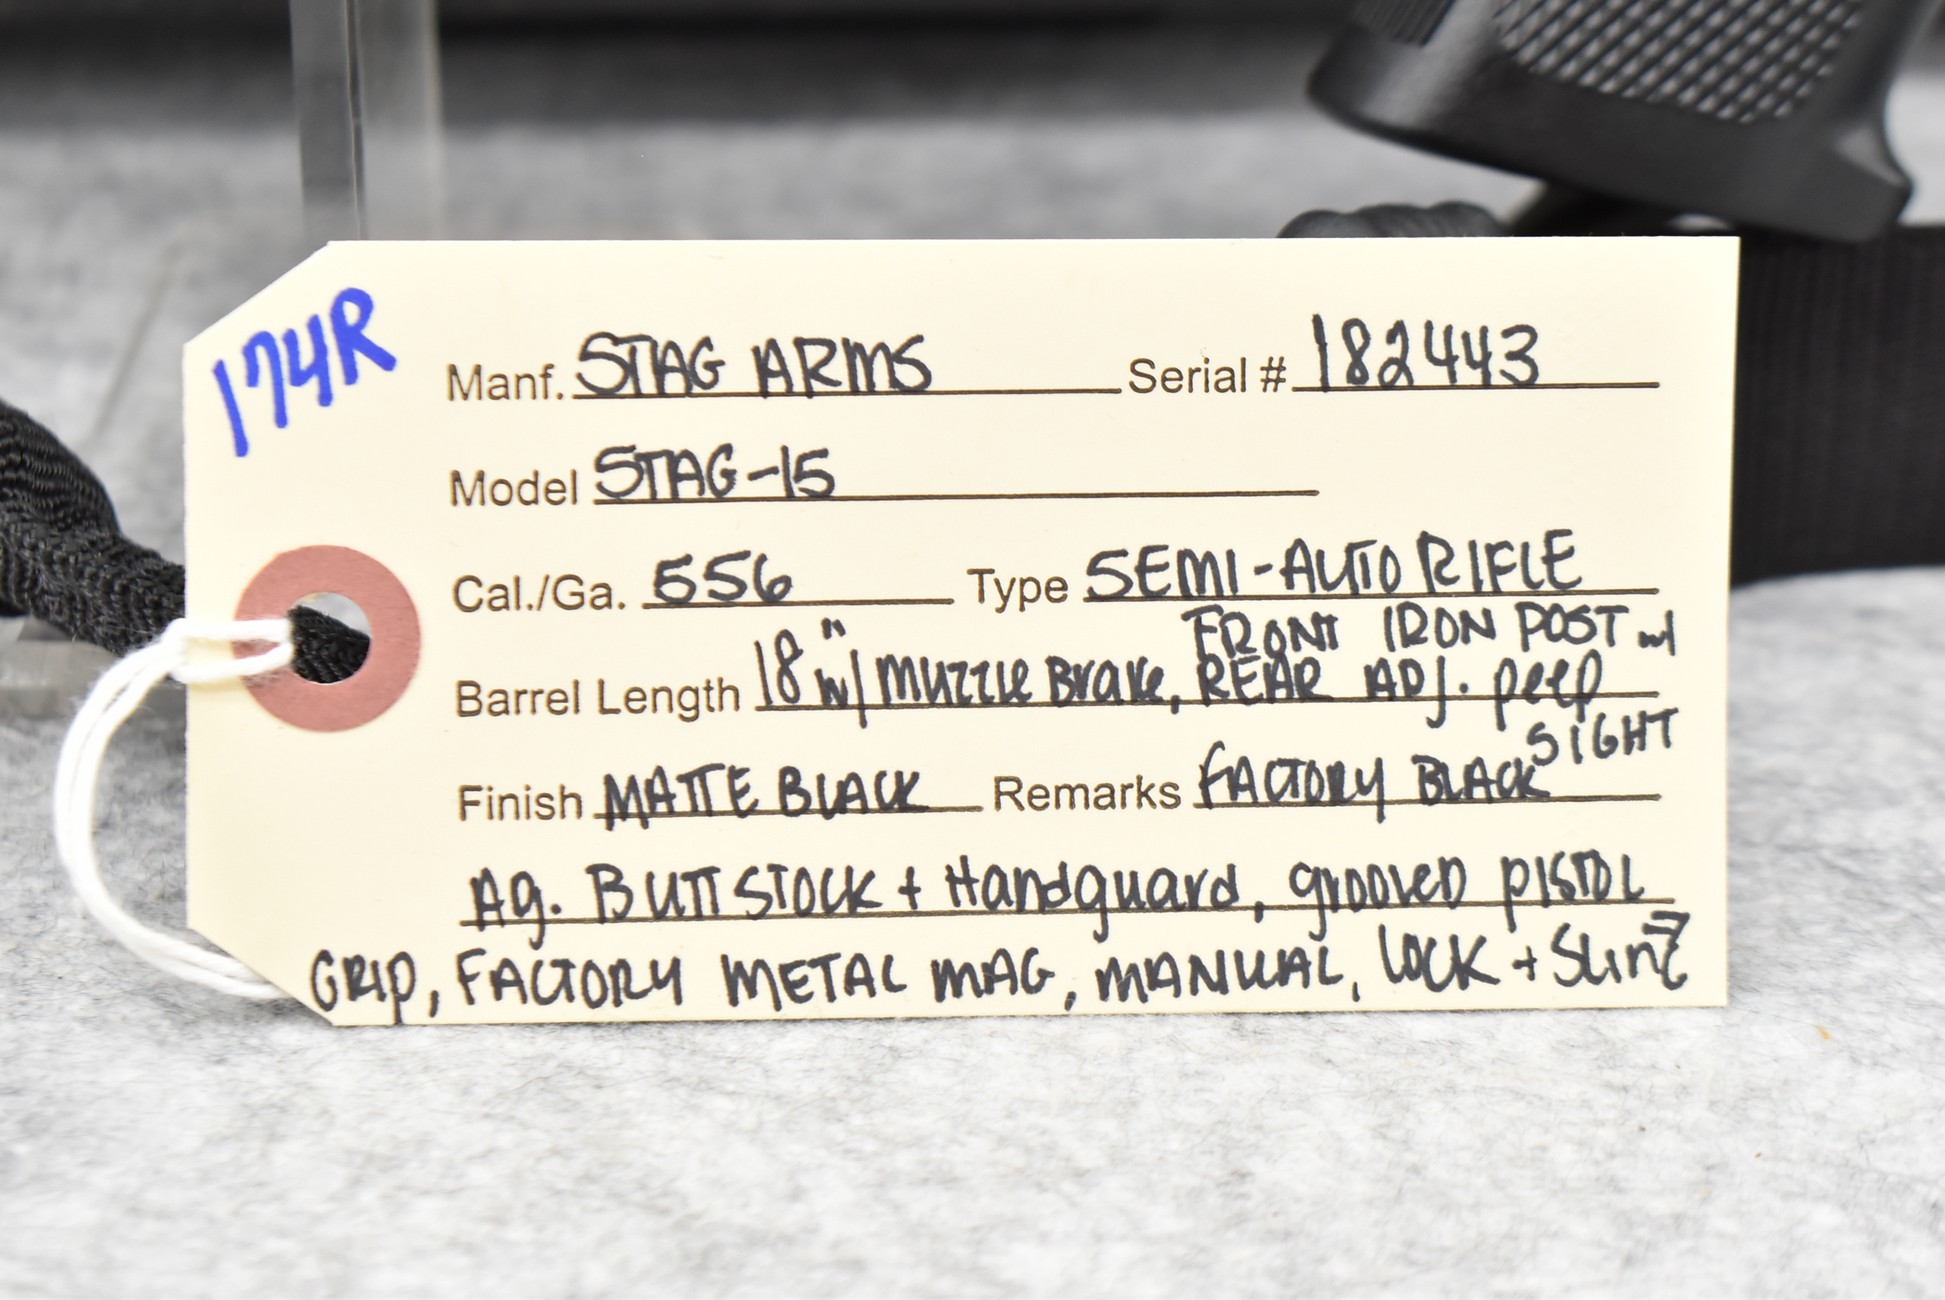 174R
Manf. STAG ARMS Serial # 182443
Model STAG-15
Cal./Ga. 556 Type SEMI-AUTO RIFLE
FRONT IRON POST w/
Barrel Length 18" w/ Muzzle Brake, REAR ADJ. peep
SIGHT
Finish MATTE BLACK Remarks FACTORY BLACK
Ag. BUTTSTOCK + Handguard, grooved pistol
GRIP, FACTORY METAL MAG, MANUAL, LOCK + Sling